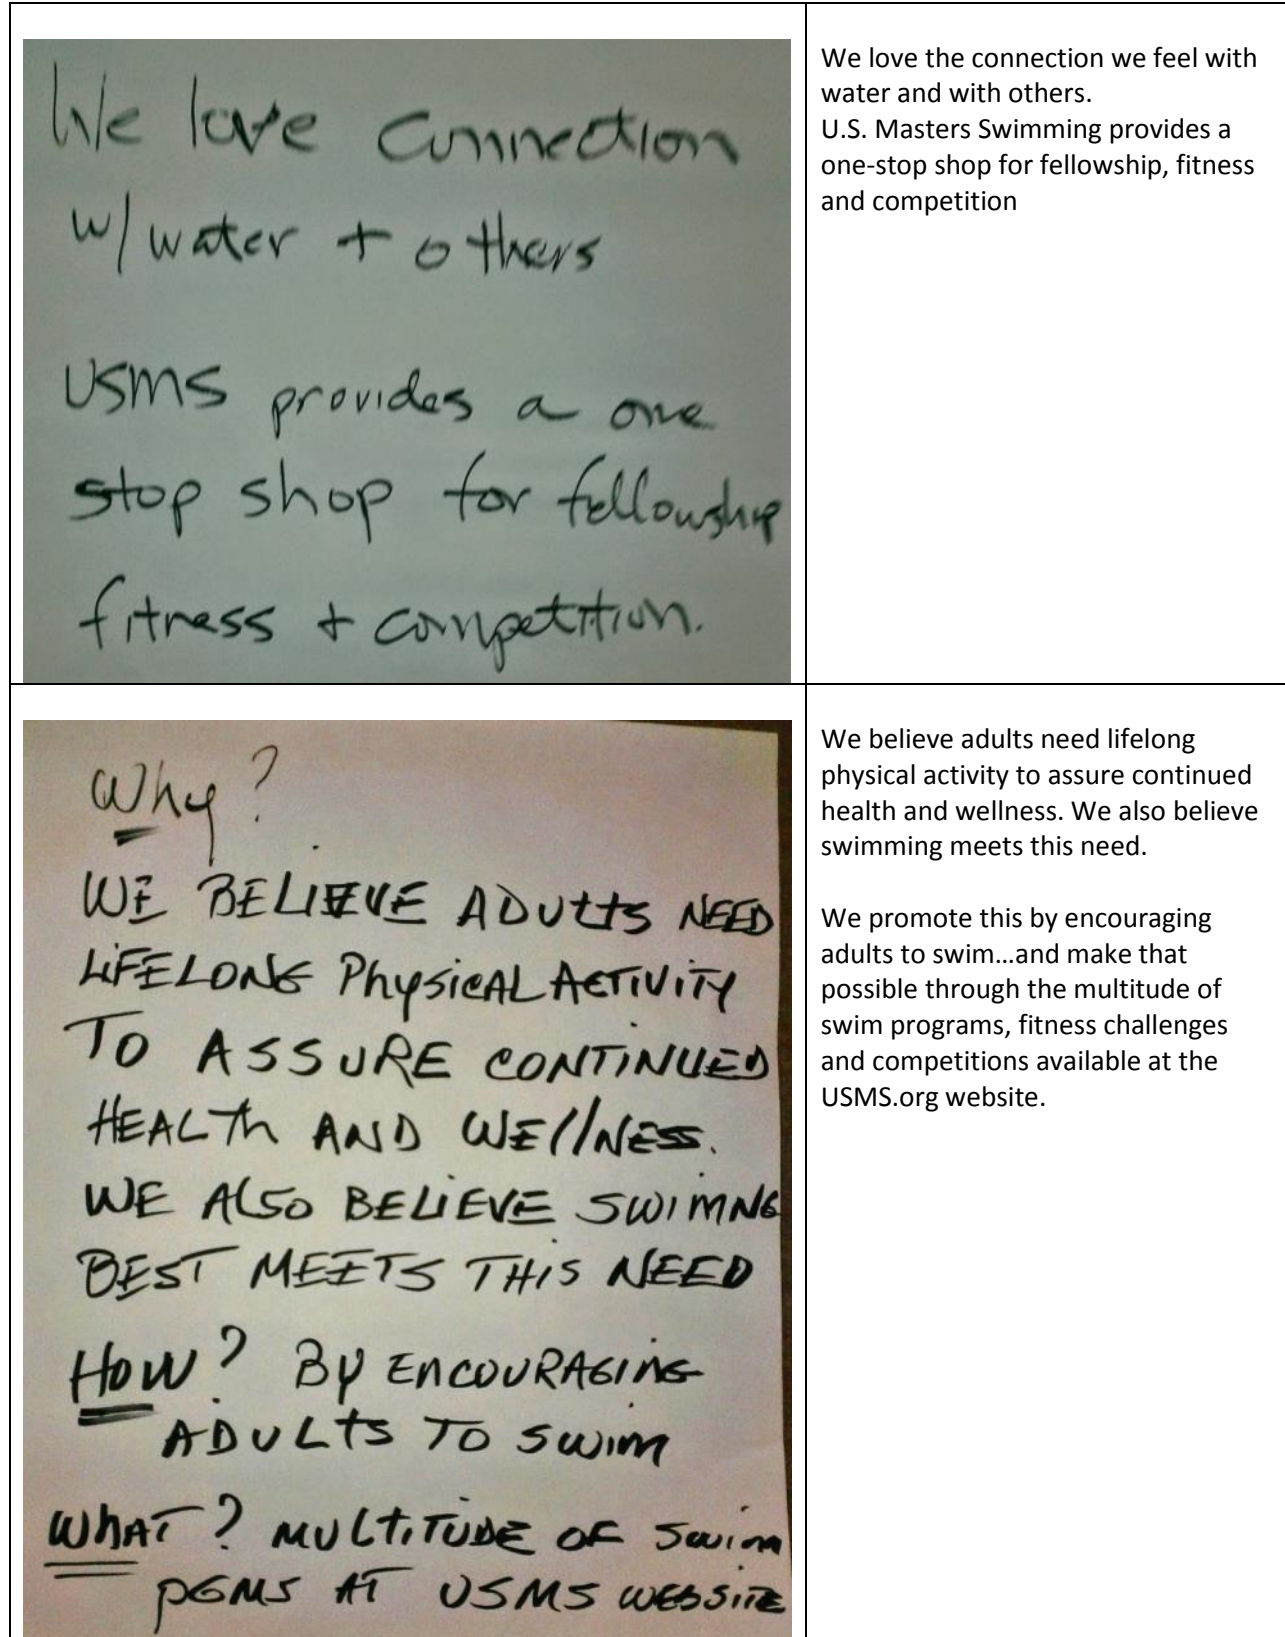 We love connection
w/water + others
USMS provides a one
stop shop for fellowship
fitness + competition.
We love the connection we feel with
water and with others.
U.S. Masters Swimming provides a
one-stop shop for fellowship, fitness
and competition
Why?
WE BELIEVE ADULTS NEED
LIFELONG PhysicAL ACTIVITY
TO ASSURE CONTINUED
HEALTh AND WEllNESS.
WE AlSO BELIEVE SWIMNG
BEST MEETS THIS NEED
HOW? By ENCOURAGING
ADULTS TO SWIM
WHAT? MULTITUDE OF SWIM
PGMS AT USMS WEBSITE
We believe adults need lifelong
physical activity to assure continued
health and wellness. We also believe
swimming meets this need.
We promote this by encouraging
adults to swim…and make that
possible through the multitude of
swim programs, fitness challenges
and competitions available at the
USMS.org website.